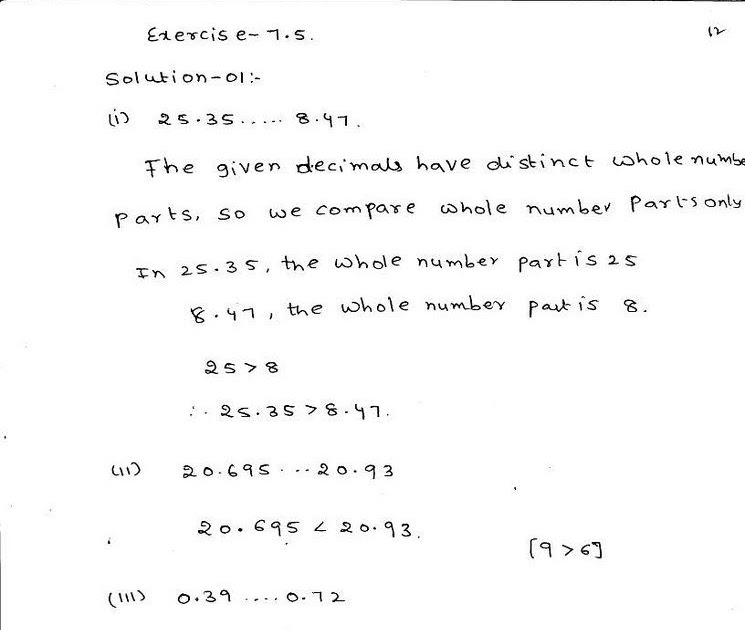 Exercise-7.5.
12
Solution-01:-
(i) 25.35..... 8.47.
The given decimals have distinct whole numbe
parts, so we compare whole number Parts only
In 25.35, the whole number part is 25
8.47, the whole number part is 8.
25 > 8
∴ 25.35 > 8.47.
(ii) 20.695 ... 20.93
20.695 < 20.93.
[9 > 6]
(iii) 0.39 .... 0.72